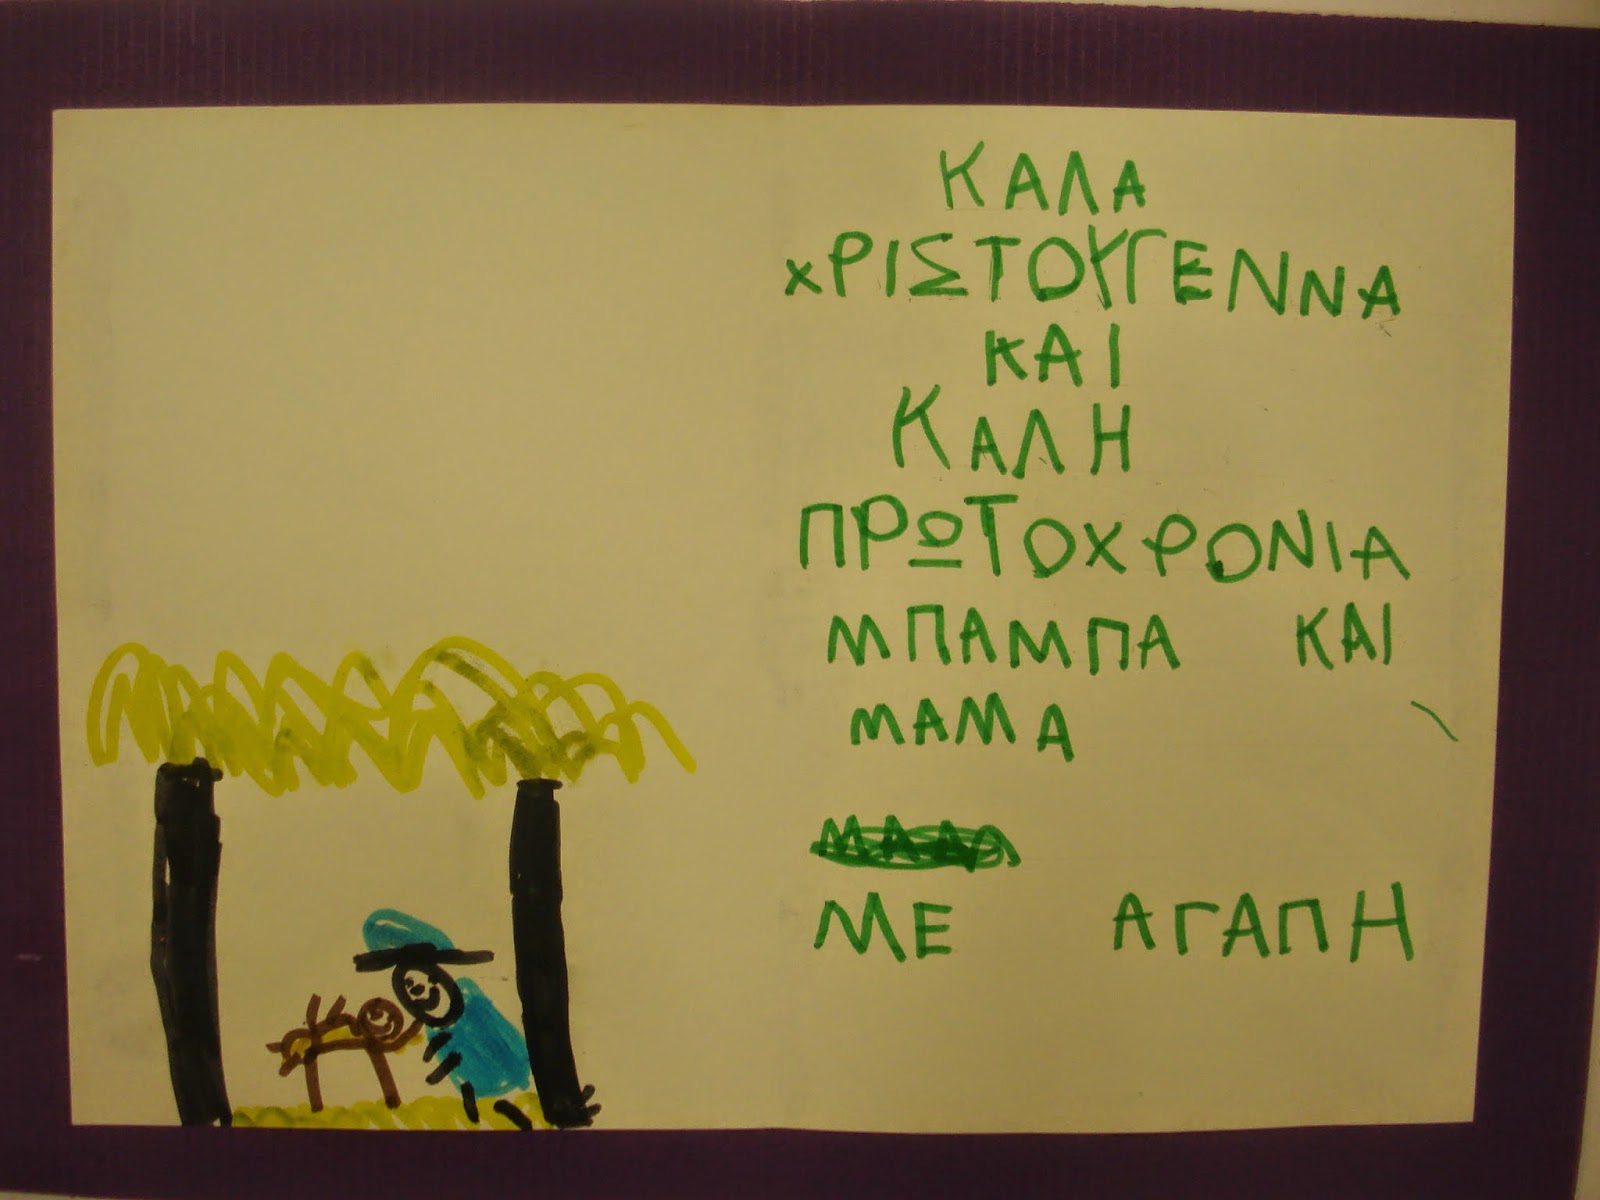 ΚΑΛΑ
ΧΡΙΣΤΟΥΓΕΝΝΑ
ΚΑΙ
ΚΑΛΗ
ΠΡΩΤΟΧΡΟΝΙΑ
ΜΠΑΜΠΑ ΚΑΙ
ΜΑΜΑ
ΜΕ ΑΓΑΠΗ